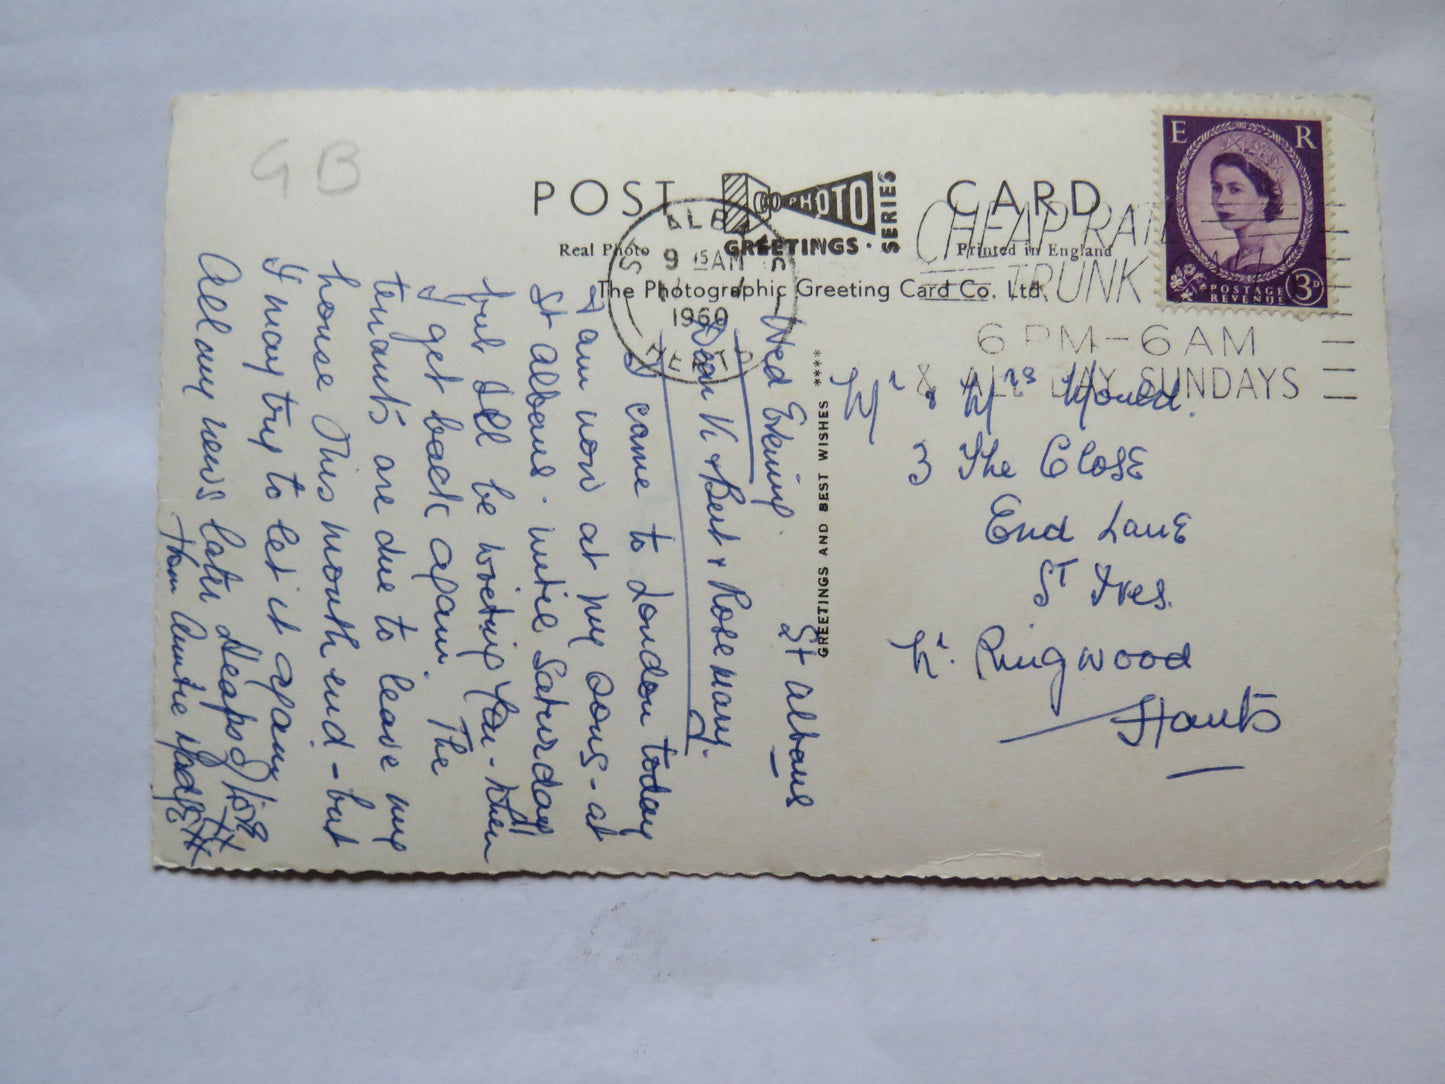 GB
POST CARD
GOPHOTO SERIES
GREETINGS
Real Photo
Printed in England
The Photographic Greeting Card Co. Ltd.
ST ALBANS
9 15 AM
1960
HERTS
CHEAP RATE
TRUNK
6 PM-6 AM
& ALL DAY SUNDAYS
E R
POSTAGE
REVENUE
3D
GREETINGS AND BEST WISHES ****
Mr & Mrs Mould.
3 The Close
End Lane
St Ives.
Nr. Ringwood
Hants
St Albans
Wed Evening.
Dear K & Bert & Rosemary.
I came to London today
I am now at my sons - at
St Albans - until Saturday
but Ill be writing You - When
I get back again. The
tenants are due to leave my
house this month end - but
I may try to let it again
All my news later Heaps of love
from Auntie Madge XX
XX